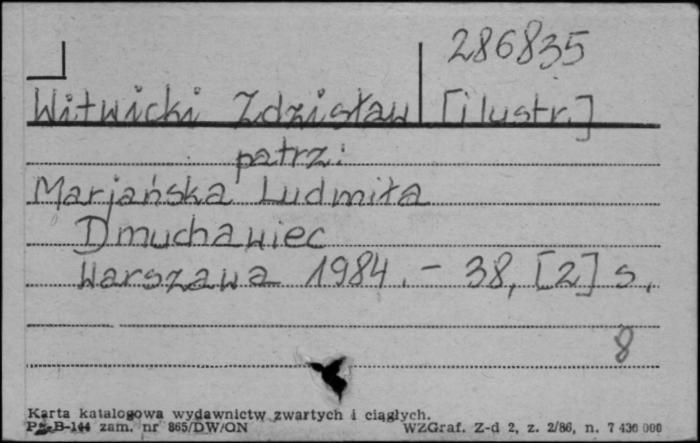 286835
Witwicki Zdzisław [ilustr.]
patrz:
Marjańska Ludmiła
Dmuchawiec
Warszawa 1984. – 38, [2] s.
8
Karta katalogowa wydawnictw zwartych i ciągłych.
zam. nr 865/DW/ON WZGraf. Z-d 2, z. 2/86, n. 7 430 000